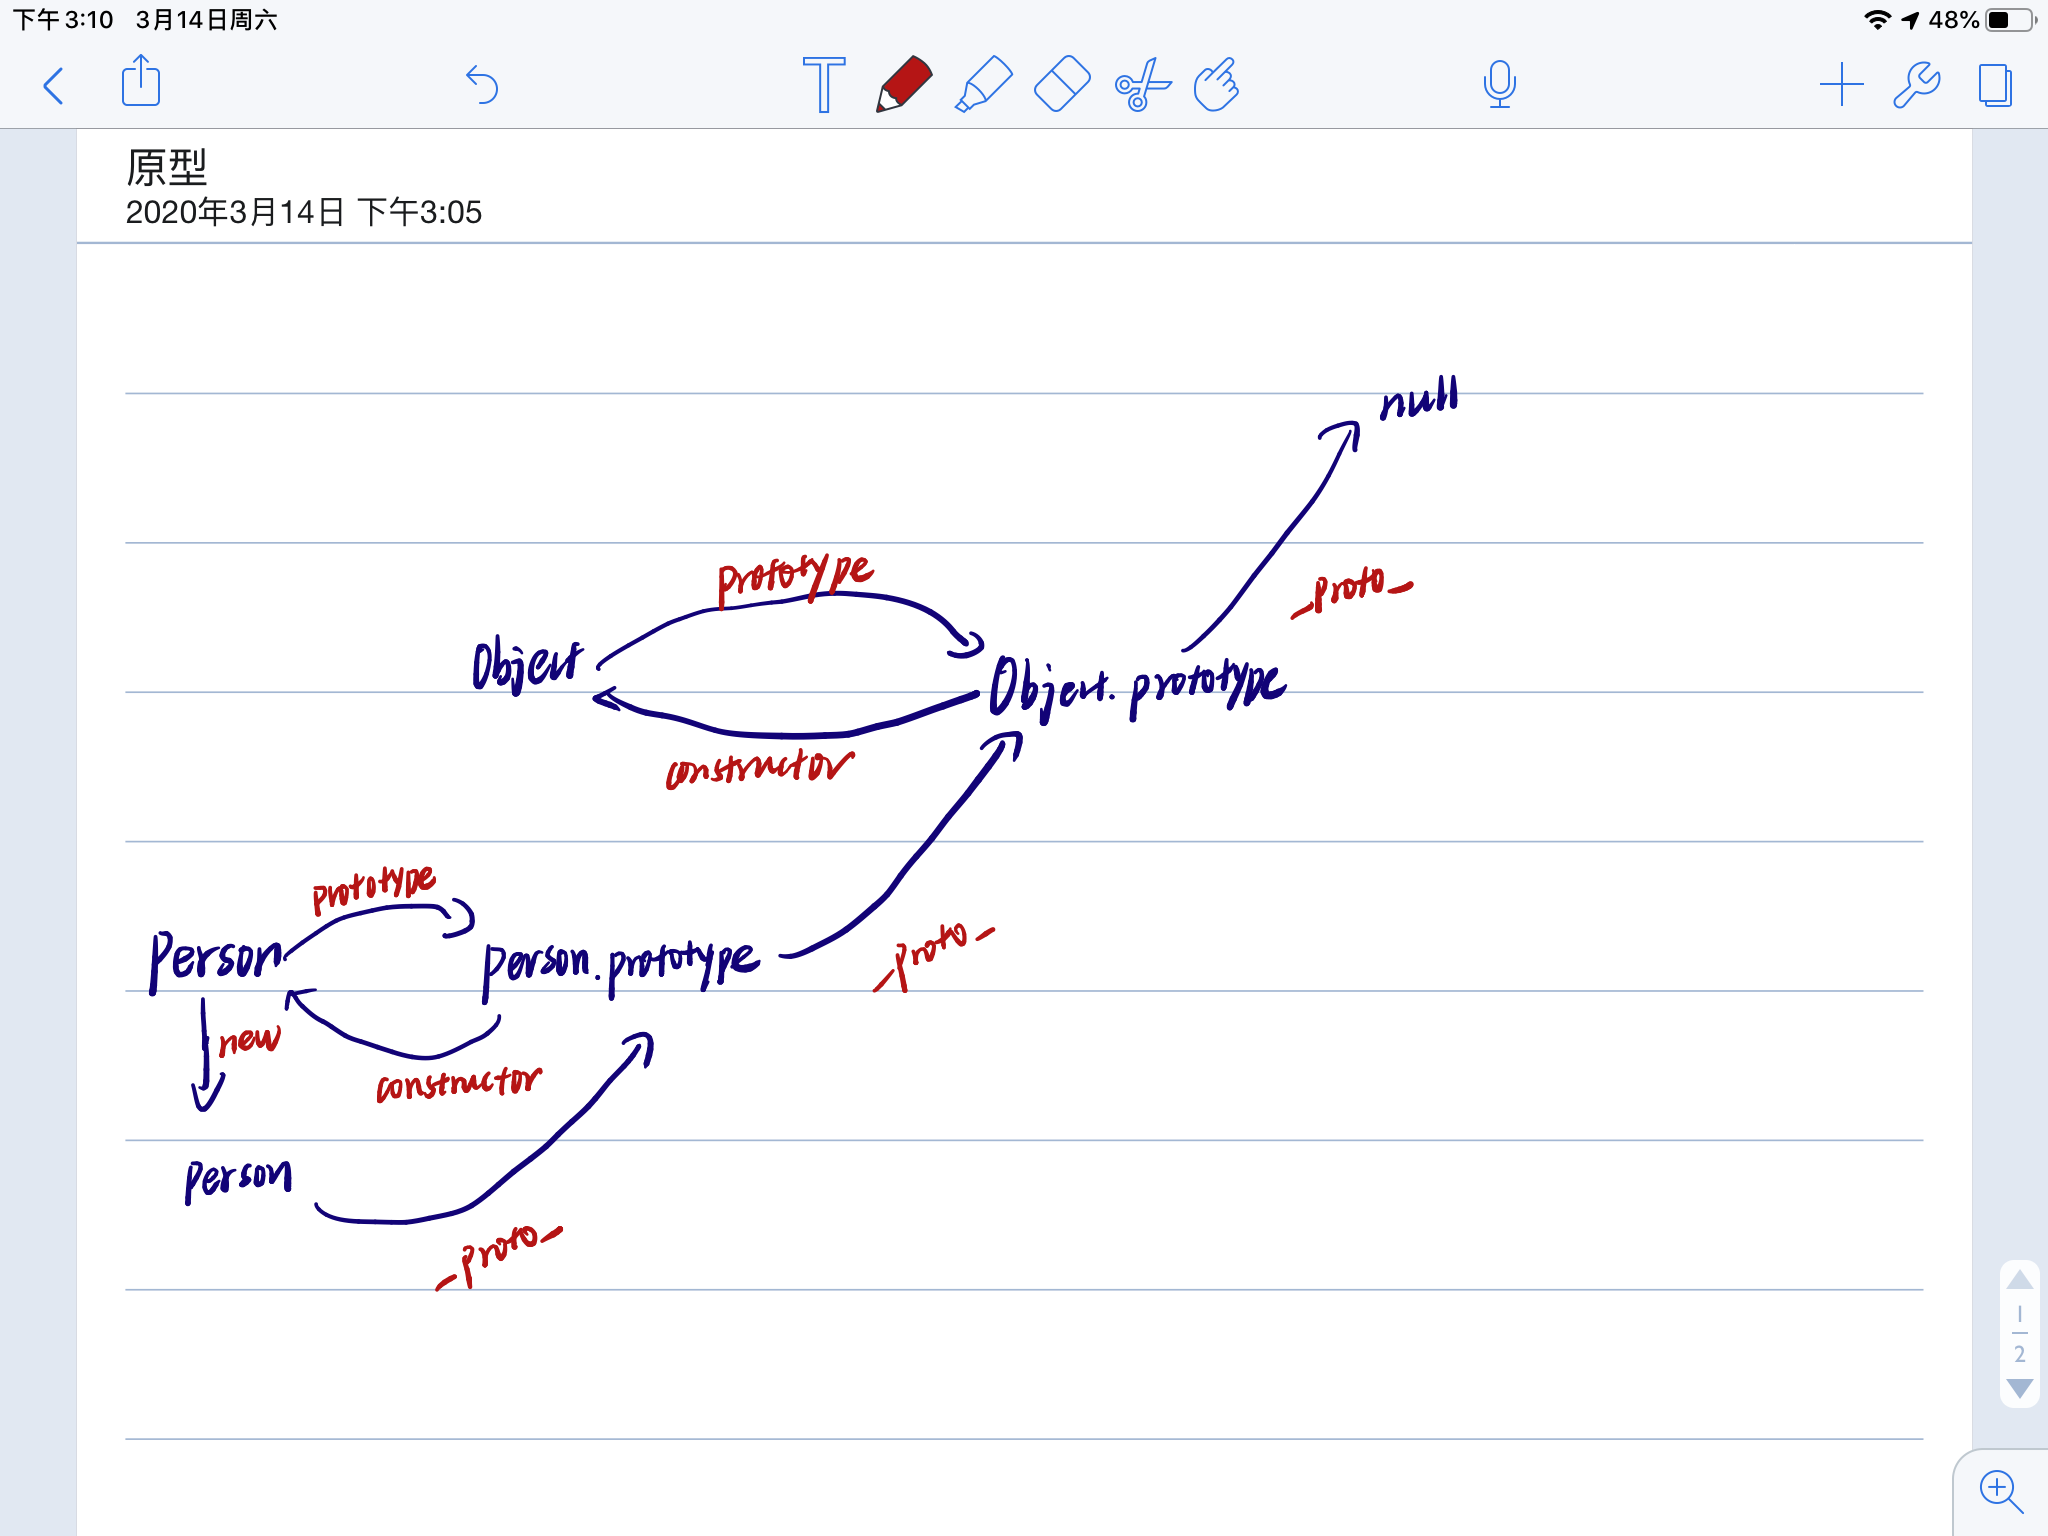 下午3:10 3月14日周六 48%
T
原型
2020年3月14日 下午3:05
null
prototype
_proto_
Object
Object.prototype
constructor
prototype
Person
person.prototype
_proto_
new
constructor
person
_proto_
1
2